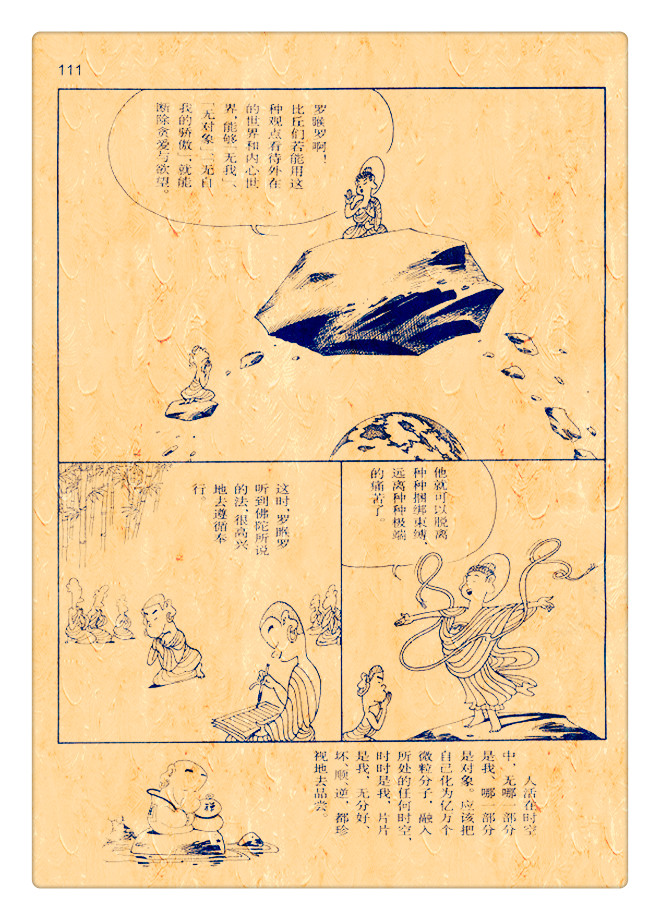 111
罗睺罗啊！
比丘们若能用这
种观点看待外在
的世界和内心世
界，能够「无我」、
「无对象」「无自
我的骄傲」，就能
断除贪爱与欲望。
他就可以脱离
种种捆绑束缚，
远离种种极端
的痛苦了。
这时，罗睺罗
听到佛陀所说
的法，很高兴
地去遵循奉
行。
人活在时空
中，无哪一部分
是我、哪一部分
是对象。应该把
自己化为亿万个
微粒分子，融入
所处的任何时空，
时时是我，片片
是我，无分好、
坏、顺、逆，都珍
视地去品尝。